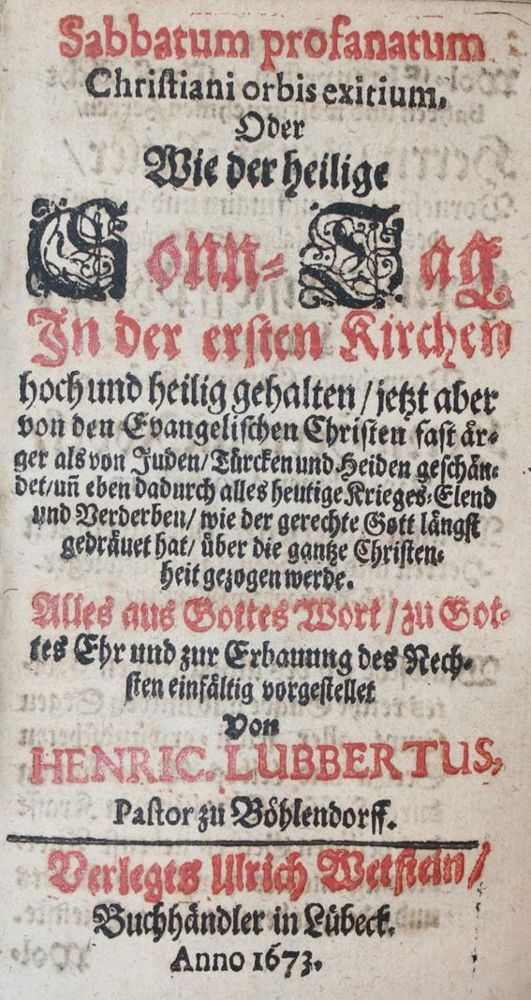 Sabbatum profanatum
Chriſtiani orbis exitium,
Oder
Wie der heilige
Sonn-Tag
In der erſten Kirchen
hoch und heilig gehalten / jetzt aber
von den Evangeliſchen Chriſten faſt aͤr-
ger als von Juden / Tuͤrcken und Heiden geſchaͤn-
det / uñ eben dadurch alles heutige Krieges-Elend
und Verderben / wie der gerechte Gott laͤngſt
gedraͤuet hat / uͤber die gantze Chriſten-
heit gezogen werde.
Alles aus Gottes Wort / zu Got-
tes Ehr und zur Erbauung des Nech-
ſten einfaͤltig vorgeſtellet
Von
HENRIC. LUBBERTUS,
Paſtor zu Boͤhlendorff.
Verlegts Ulrich Wetſtein /
Buchhaͤndler in Luͤbeck.
Anno 1673.